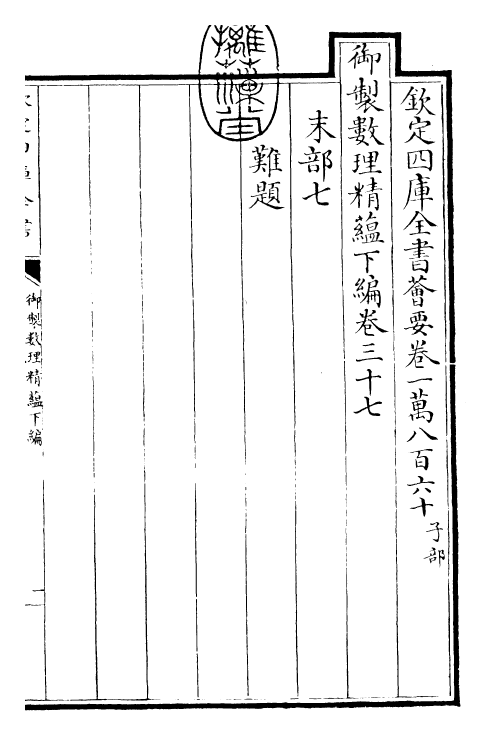 欽定四庫全書薈要卷一萬八百六十子部
御製數理精蘊下編卷三十七
末部七
難題
摛藻堂
御製數理精蘊下編